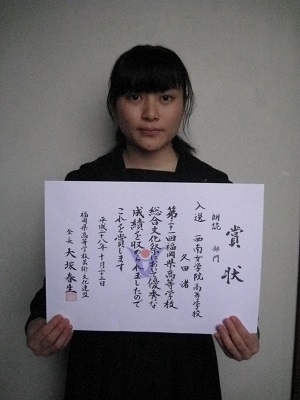 賞状
朗読 部門
入選 西南女学院高等学校
久田 渚
第二十一回福岡県高等学校
総合文化祭において優秀な
成績を収められましたので
これを賞します
平成二十八年十月二十三日
福岡県高等学校芸術文化連盟
会長 大塚春生